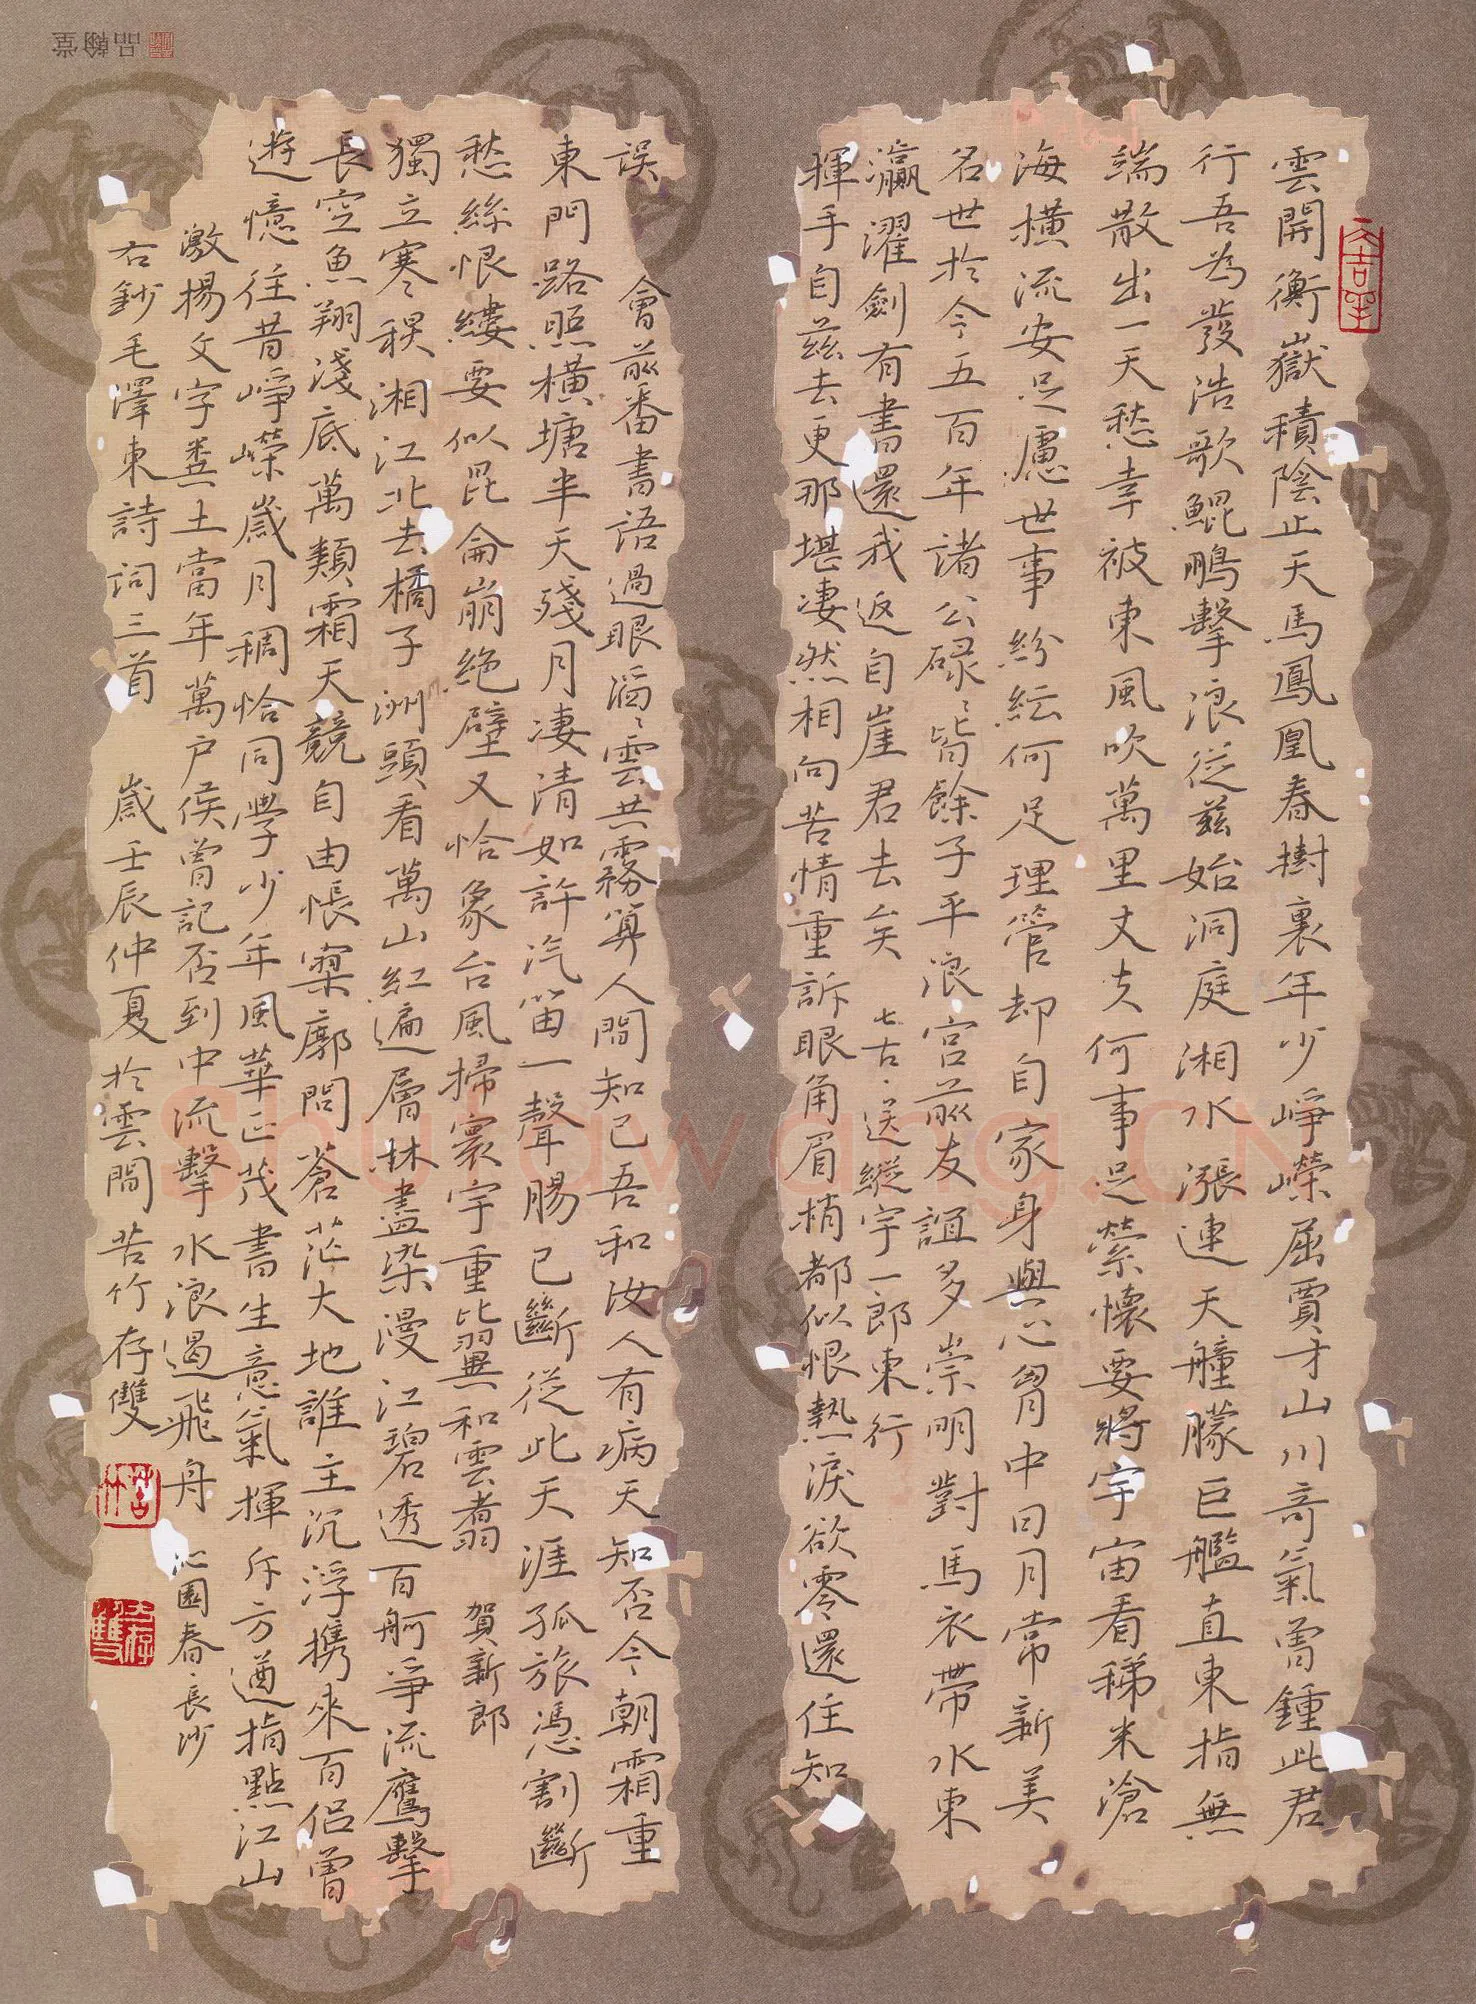 雲開衡嶽積陰止天馬鳳凰春樹裏年少崢嶸屈賈才山川奇氣曾鍾此君
行吾為發浩歌鯤鵬擊浪從茲始洞庭湘水漲連天艟艨巨艦直東指無
端散出一天愁幸被東風吹萬里丈夫何事足縈懷要將宇宙看稊米滄
海橫流安足慮世事紛紜何足理管却自家身與心胸中日月常新美
名世於今五百年諸公碌々皆餘子平浪宮前友誼多崇明對馬衣帶水東
瀛濯劍有書還我返自崖君去矣 七古·送縱宇一郎東行
揮手自茲去更那堪凄然相向苦情重訴眼角眉梢都似恨熱淚欲零還住知
誤會前番書語過眼滔々雲共霧算人間知己吾和汝人有病天知否今朝霜重
東門路照橫塘半天殘月凄清如許汽笛一聲腸已斷從此天涯孤旅憑割斷
愁絲恨縷要似昆侖崩絕壁又恰象台風掃寰宇重比翼和雲翥 賀新郎
獨立寒秋湘江北去橘子洲頭看萬山紅遍層林盡染漫江碧透百舸爭流鷹擊
長空魚翔淺底萬類霜天競自由悵寥廓問蒼茫大地誰主沉浮攜來百侶曾
遊憶往昔崢嶸歲月稠恰同學少年風華正茂書生意氣揮斥方遒指點江山
激揚文字糞土當年萬戶侯曾記否到中流擊水浪遏飛舟 沁園春·長沙
右鈔毛澤東詩詞三首 歲壬辰仲夏於雲間苦竹存雙
苦竹
品翰堂
Shufawang.CN